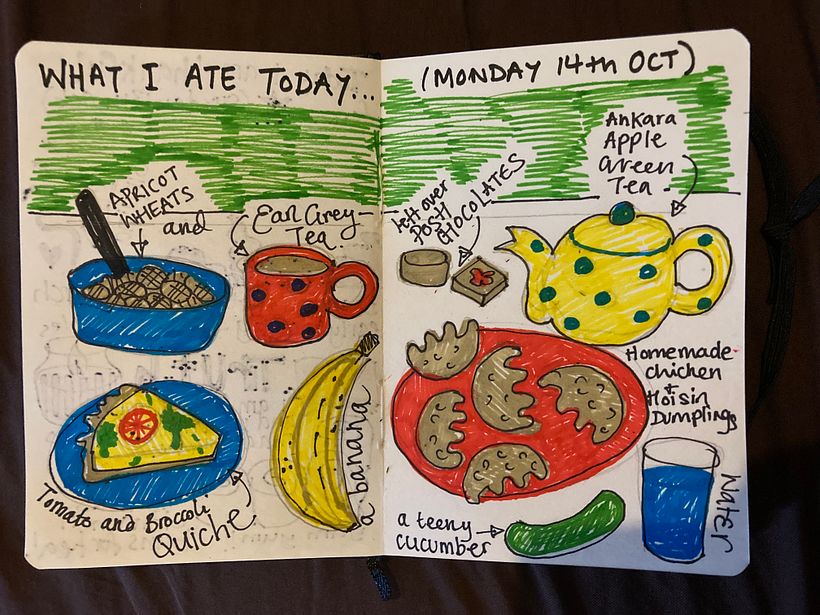 WHAT I ATE TODAY...
APRICOT
WHEATS
and
Earl Grey
Tea.
a banana
Tomato and Broccoli
Quiche
(MONDAY 14th OCT)
left over
POSH
CHOCOLATES
Ankara
Apple
Green
Tea.
Homemade
chicken
+
Hoisin
Dumplings
a teeny
cucumber
Water